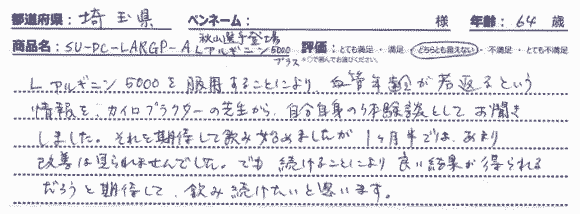 都道府県: 埼玉県 ペンネーム: 様 年齢: 64 歳
秋山選手登場
商品名: SU-DC-LARGP-A Lアルギニン5000 プラス 評価: とても満足 ・ 満足 ・ どちらとも言えない ・ 不満足 ・ とても不満足
※○で囲んでお選びください。
L アルギニン5000を服用することにより、血管年齢が若返るという
情報を、カイロプラクターの先生から、自分自身の体験談としてお聞き
しました。それを期待して飲み始めましたが1ヶ月半では、あまり
改善は見られませんでした。でも続けることにより良い結果が得られる
だろうと期待して、飲み続けたいと思います。